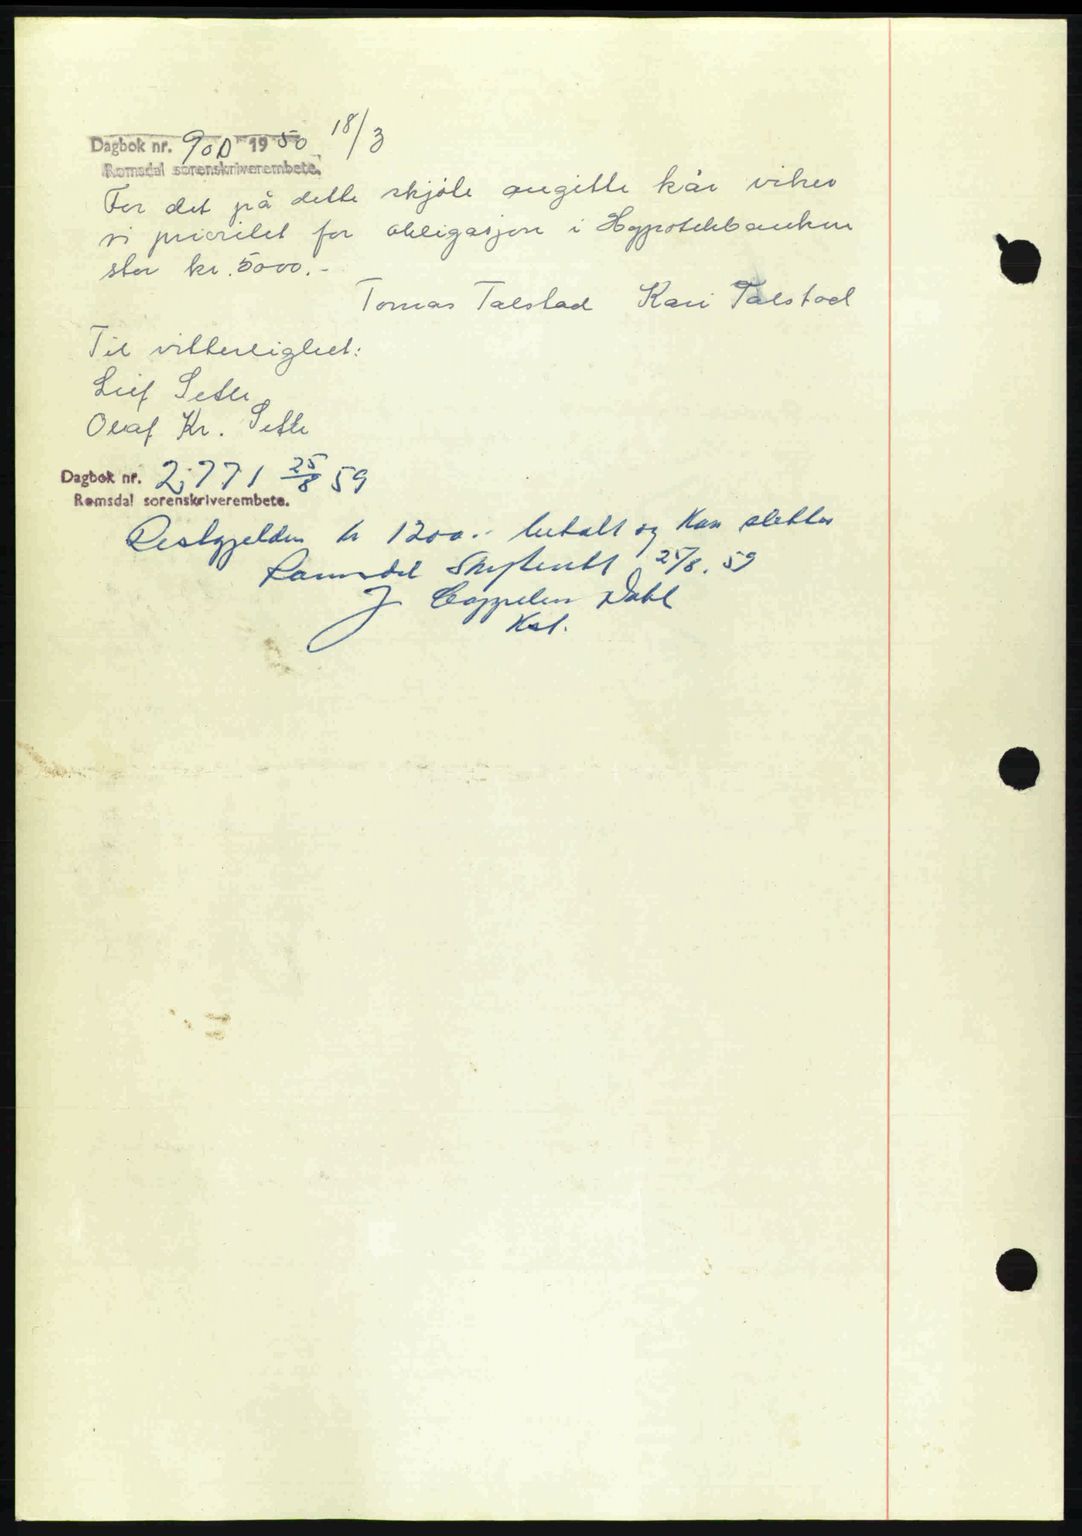 Dagbok nr. 900 1950 18/3
Romsdal sorenskriverembete.
For det på dette skjöte angitte kår viker
vi prioritet for obligasjon i Hypotekbanken
stor kr. 5000.-
Tomas Talstad Kari Talstad
Til vitterlighet:
Leif Setle
Olaf Kr. Setle
Dagbok nr. 2771 25/8 59
Romsdal sorenskriverembete.
Restgjelden kr 1200.- betalt og kan slettes
Romsdal Skifterett 25/8. 59
J Cappelen Dahl
Kst.